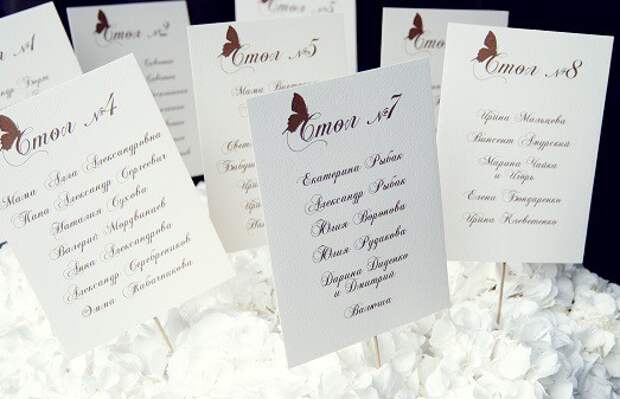 Стол №1
Стол №2
Стол №5
Мама
Стол №4
Мама Алла Александровна
Папа Александр Сергеевич
Наталия Сухова
Валерий Мордвинцев
Анна Александрова
Александр Серебренников
Эмма Табачникова
Стол №7
Екатерина Рыбак
Александр Рыбак
Юлия Воронова
Юлия Рудакова
Дарина Диденко
и Дмитрий
Валюша
Стол №8
Ирина Мальцова
Винсент Амурский
Марина Чайка
и Игорь
Елена Бондаренко
Ирина Клеветенко